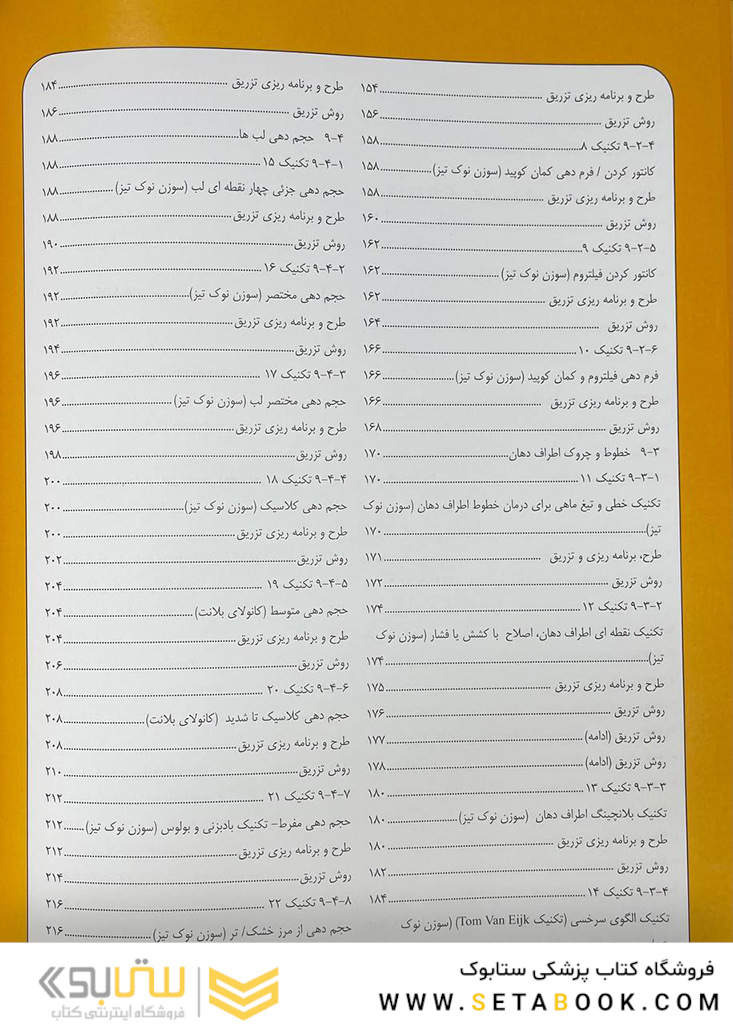 طرح و برنامه ریزی تزریق ۱۵۴
روش تزریق ۱۵۶
۹-۲-۴ تکنیک ۸ ۱۵۸
کانتور کردن / فرم دهی کمان کوپید (سوزن نوک تیز) ۱۵۸
طرح و برنامه ریزی تزریق ۱۵۸
روش تزریق ۱۶۰
۹-۲-۵ تکنیک ۹ ۱۶۲
کانتور کردن فیلتروم (سوزن نوک تیز) ۱۶۲
طرح و برنامه ریزی تزریق ۱۶۲
روش تزریق ۱۶۴
۹-۲-۶ تکنیک ۱۰ ۱۶۶
فرم دهی فیلتروم و کمان کوپید (سوزن نوک تیز) ۱۶۶
طرح و برنامه ریزی تزریق ۱۶۶
روش تزریق ۱۶۸
۹-۳ خطوط و چروک اطراف دهان ۱۷۰
۹-۳-۱ تکنیک ۱۱ ۱۷۰
تکنیک خطی و تیغ ماهی برای درمان خطوط اطراف دهان (سوزن نوک
تیز) ۱۷۰
طرح، برنامه ریزی و تزریق ۱۷۱
روش تزریق ۱۷۲
۹-۳-۲ تکنیک ۱۲ ۱۷۴
تکنیک نقطه ای اطراف دهان، اصلاح با کشش یا فشار (سوزن نوک
تیز) ۱۷۴
طرح و برنامه ریزی تزریق ۱۷۵
روش تزریق ۱۷۶
روش تزریق (ادامه) ۱۷۷
روش تزریق (ادامه) ۱۷۸
۹-۳-۳ تکنیک ۱۳ ۱۸۰
تکنیک بلانچینگ اطراف دهان (سوزن نوک تیز) ۱۸۰
طرح و برنامه ریزی تزریق ۱۸۰
روش تزریق ۱۸۲
۹-۳-۴ تکنیک ۱۴ ۱۸۴
تکنیک الگوی سرخسی (تکنیک Tom Van Eijk) (سوزن نوک
طرح و برنامه ریزی تزریق ۱۸۴
روش تزریق ۱۸۶
۹-۴ حجم دهی لب ها ۱۸۸
۹-۴-۱ تکنیک ۱۵ ۱۸۸
حجم دهی جزئی چهار نقطه ای لب (سوزن نوک تیز) ۱۸۸
طرح و برنامه ریزی تزریق ۱۸۸
روش تزریق ۱۹۰
۹-۴-۲ تکنیک ۱۶ ۱۹۲
حجم دهی مختصر (سوزن نوک تیز) ۱۹۲
طرح و برنامه ریزی تزریق ۱۹۲
روش تزریق ۱۹۴
۹-۴-۳ تکنیک ۱۷ ۱۹۶
حجم دهی مختصر لب (سوزن نوک تیز) ۱۹۶
طرح و برنامه ریزی تزریق ۱۹۶
روش تزریق ۱۹۸
۹-۴-۴ تکنیک ۱۸ ۲۰۰
حجم دهی کلاسیک (سوزن نوک تیز) ۲۰۰
طرح و برنامه ریزی تزریق ۲۰۰
روش تزریق ۲۰۲
۹-۴-۵ تکنیک ۱۹ ۲۰۴
حجم دهی متوسط (کانولای بلانت) ۲۰۴
طرح و برنامه ریزی تزریق ۲۰۴
روش تزریق ۲۰۶
۹-۴-۶ تکنیک ۲۰ ۲۰۸
حجم دهی کلاسیک تا شدید (کانولای بلانت) ۲۰۸
طرح و برنامه ریزی تزریق ۲۰۸
روش تزریق ۲۱۰
۹-۴-۷ تکنیک ۲۱ ۲۱۲
حجم دهی مفرط- تکنیک بادبزنی و بولوس (سوزن نوک تیز) ۲۱۲
طرح و برنامه ریزی تزریق ۲۱۲
روش تزریق ۲۱۴
۹-۴-۸ تکنیک ۲۲ ۲۱۶
حجم دهی از مرز خشک/ تر (سوزن نوک تیز) ۲۱۶
فروشگاه کتاب پزشکی ستابوک
WWW.SETABOOK.COM
ستابوک
فروشگاه اینترنتی کتاب